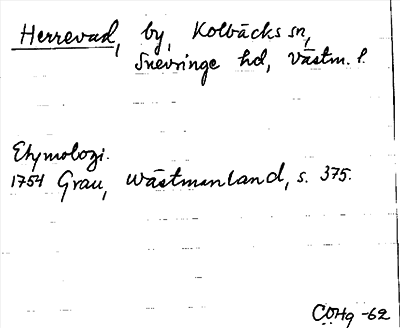 Herrevad, by, Kolbäcks sn,
Snevringe hd, Västm. l.
Etymologi.
1754 Grau, Wästmanland, s. 375.
COHg -62